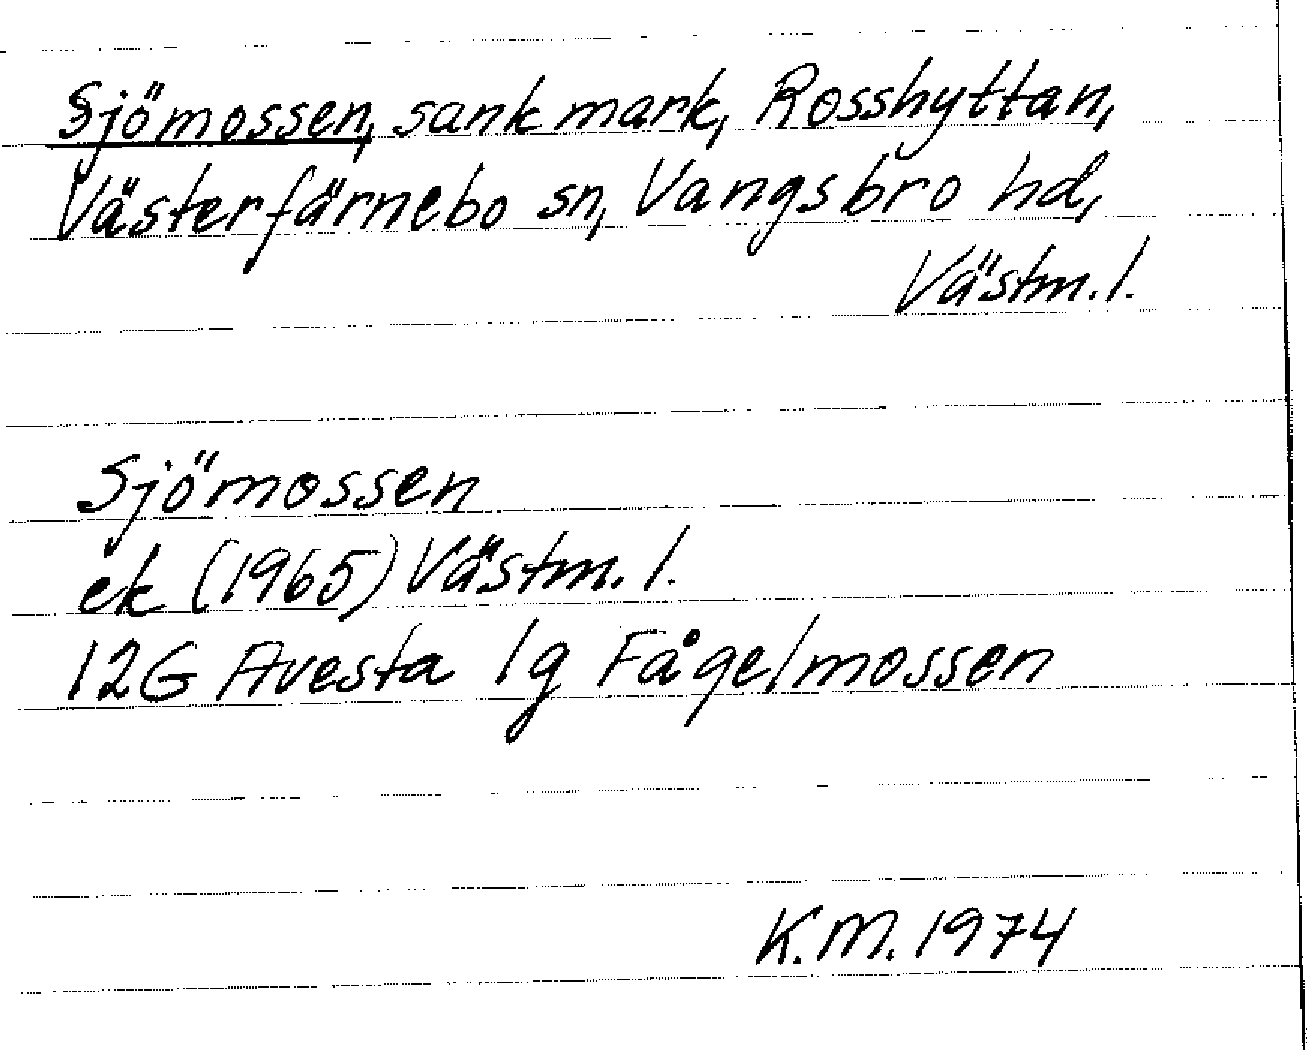 Sjömossen, sank mark, Rosshyttan,
Västerfärnebo sn, Vangsbro hd,
Västm. l.
Sjömossen
ek (1965) Västm. l.
12G Avesta 1g Fågelmossen
K.M. 1974